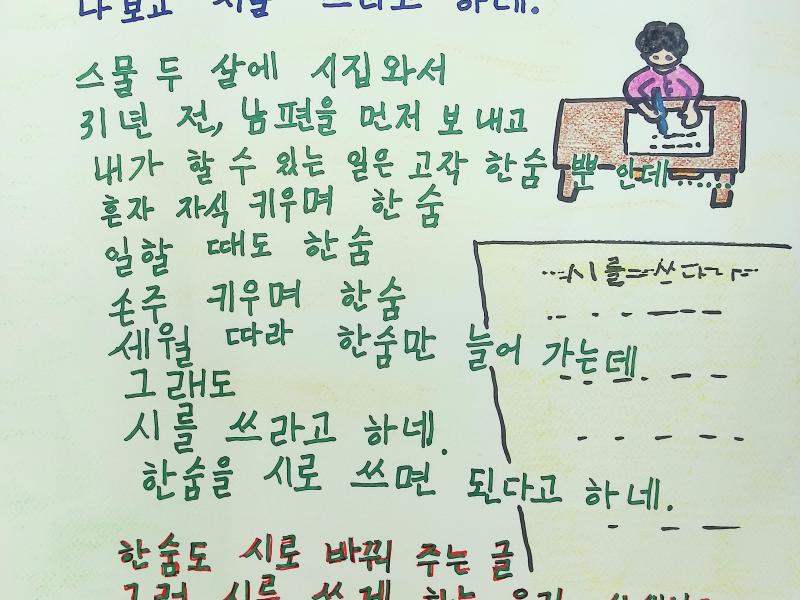 나 보고 시를 쓰라고 하네.
스물 두 살에 시집와서
31년 전, 남편을 먼저 보내고
내가 할 수 있는 일은 고작 한숨 뿐 인데......
혼자 자식 키우며 한숨
일할 때도 한숨
손주 키우며 한숨
세월 따라 한숨만 늘어 가는데
그래도
시를 쓰라고 하네.
한숨을 시로 쓰면 된다고 하네.
한숨도 시로 바꿔 주는 글
시를 쓰다